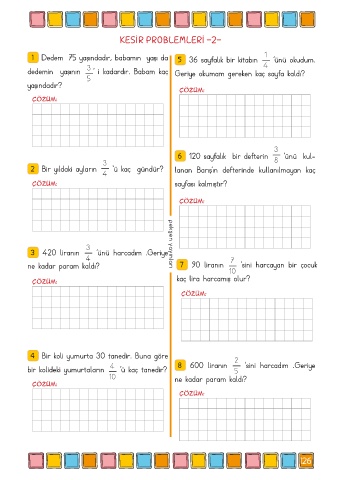 KESİR PROBLEMLERİ -2-
1 Dedem 75 yaşındadır, babamın yaşı da
dedemin yaşının 3/5 ' i kadardır. Babam kaç
yaşındadır?
ÇÖZÜM:
2 Bir yıldaki ayların 3/4 'ü kaç gündür?
ÇÖZÜM:
3 420 liranın 3/4 'ünü harcadım .Geriye
ne kadar param kaldı?
ÇÖZÜM:
4 Bir koli yumurta 30 tanedir. Buna göre
bir kolideki yumurtaların 4/10 'ü kaç tanedir?
ÇÖZÜM:
pelikan yayınları
5 36 sayfalık bir kitabın 1/4 'ünü okudum.
Geriye okumam gereken kaç sayfa kaldı?
ÇÖZÜM:
6 120 sayfalık bir defterin 3/8 'ünü kul-
lanan Barış'ın defterinde kullanılmayan kaç
sayfası kalmıştır?
ÇÖZÜM:
7 90 liranın 7/10 'sini harcayan bir çocuk
kaç lira harcamış olur?
ÇÖZÜM:
8 600 liranın 2/5 'sini harcadım .Geriye
ne kadar param kaldı?
ÇÖZÜM:
126